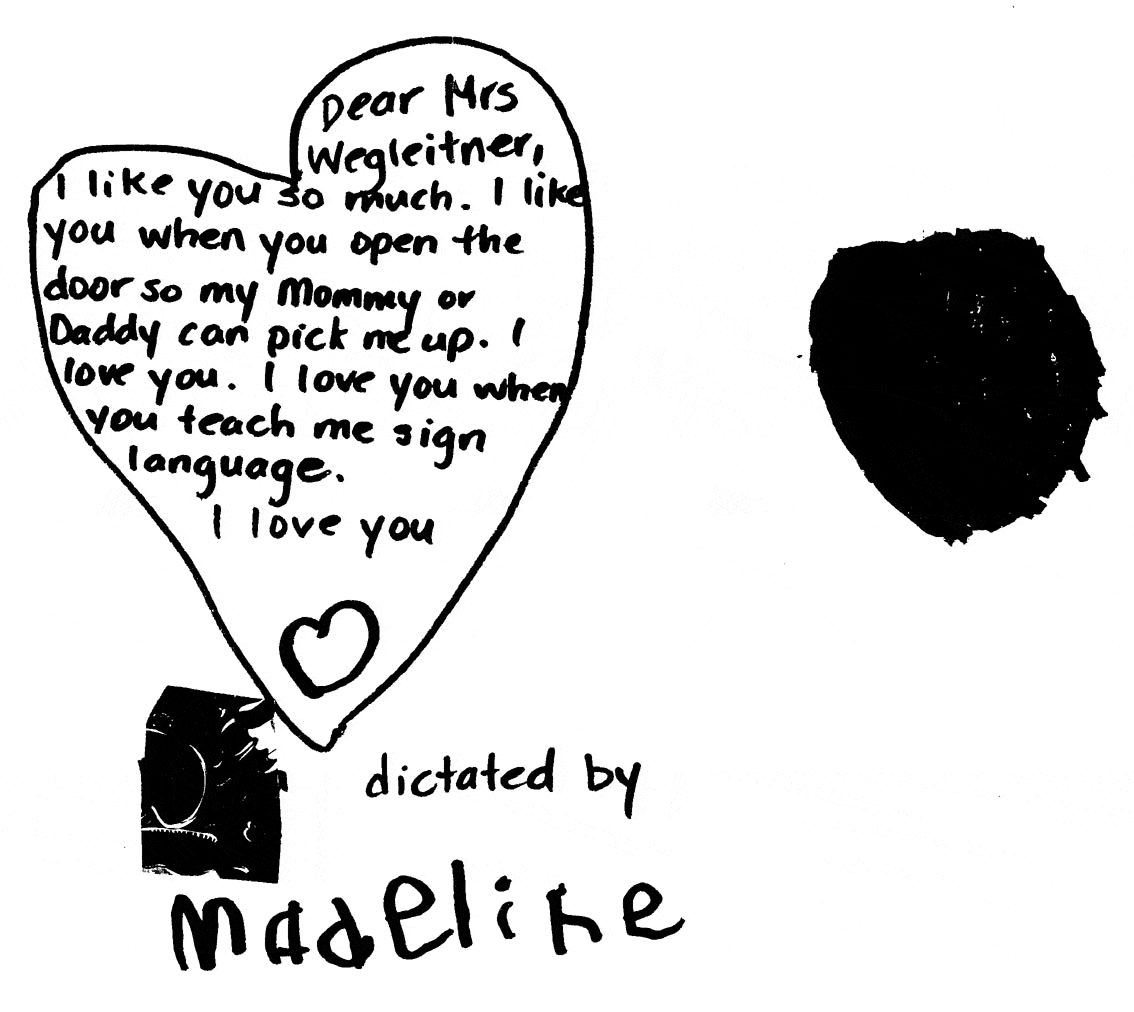 Dear Mrs
Wegleitner,
I like you so much. I like
you when you open the
door so my Mommy or
Daddy can pick me up. I
love you. I love you when
you teach me sign
language.
I love you
dictated by
Madeline